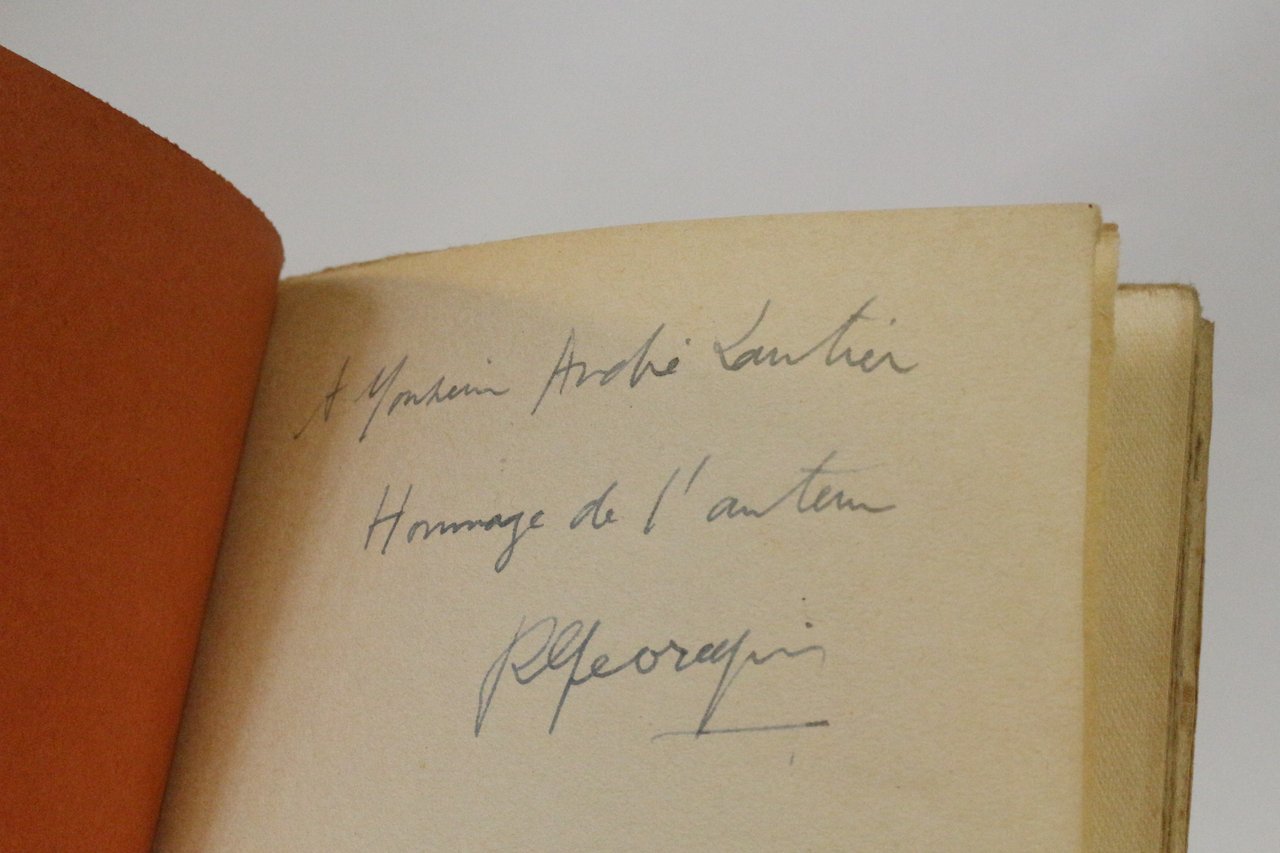 A Monsieur André Lautier
Hommage de l'auteur
R Georgin